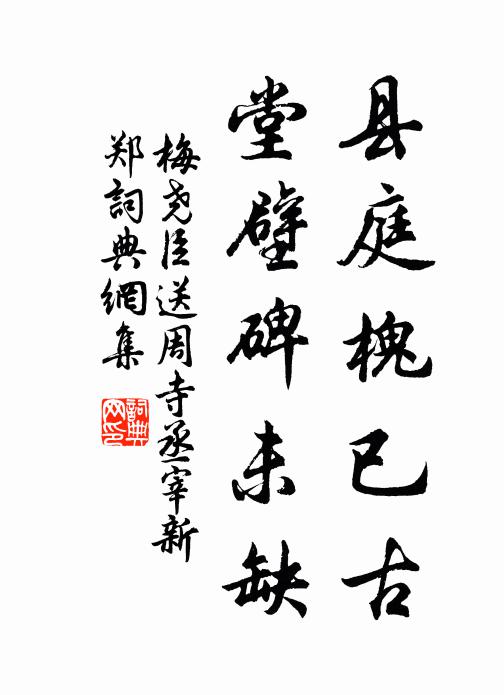 县庭槐已古
堂壁碑未缺
梅尧臣送周寺丞宰新
郑詞典網集
詞典
网印